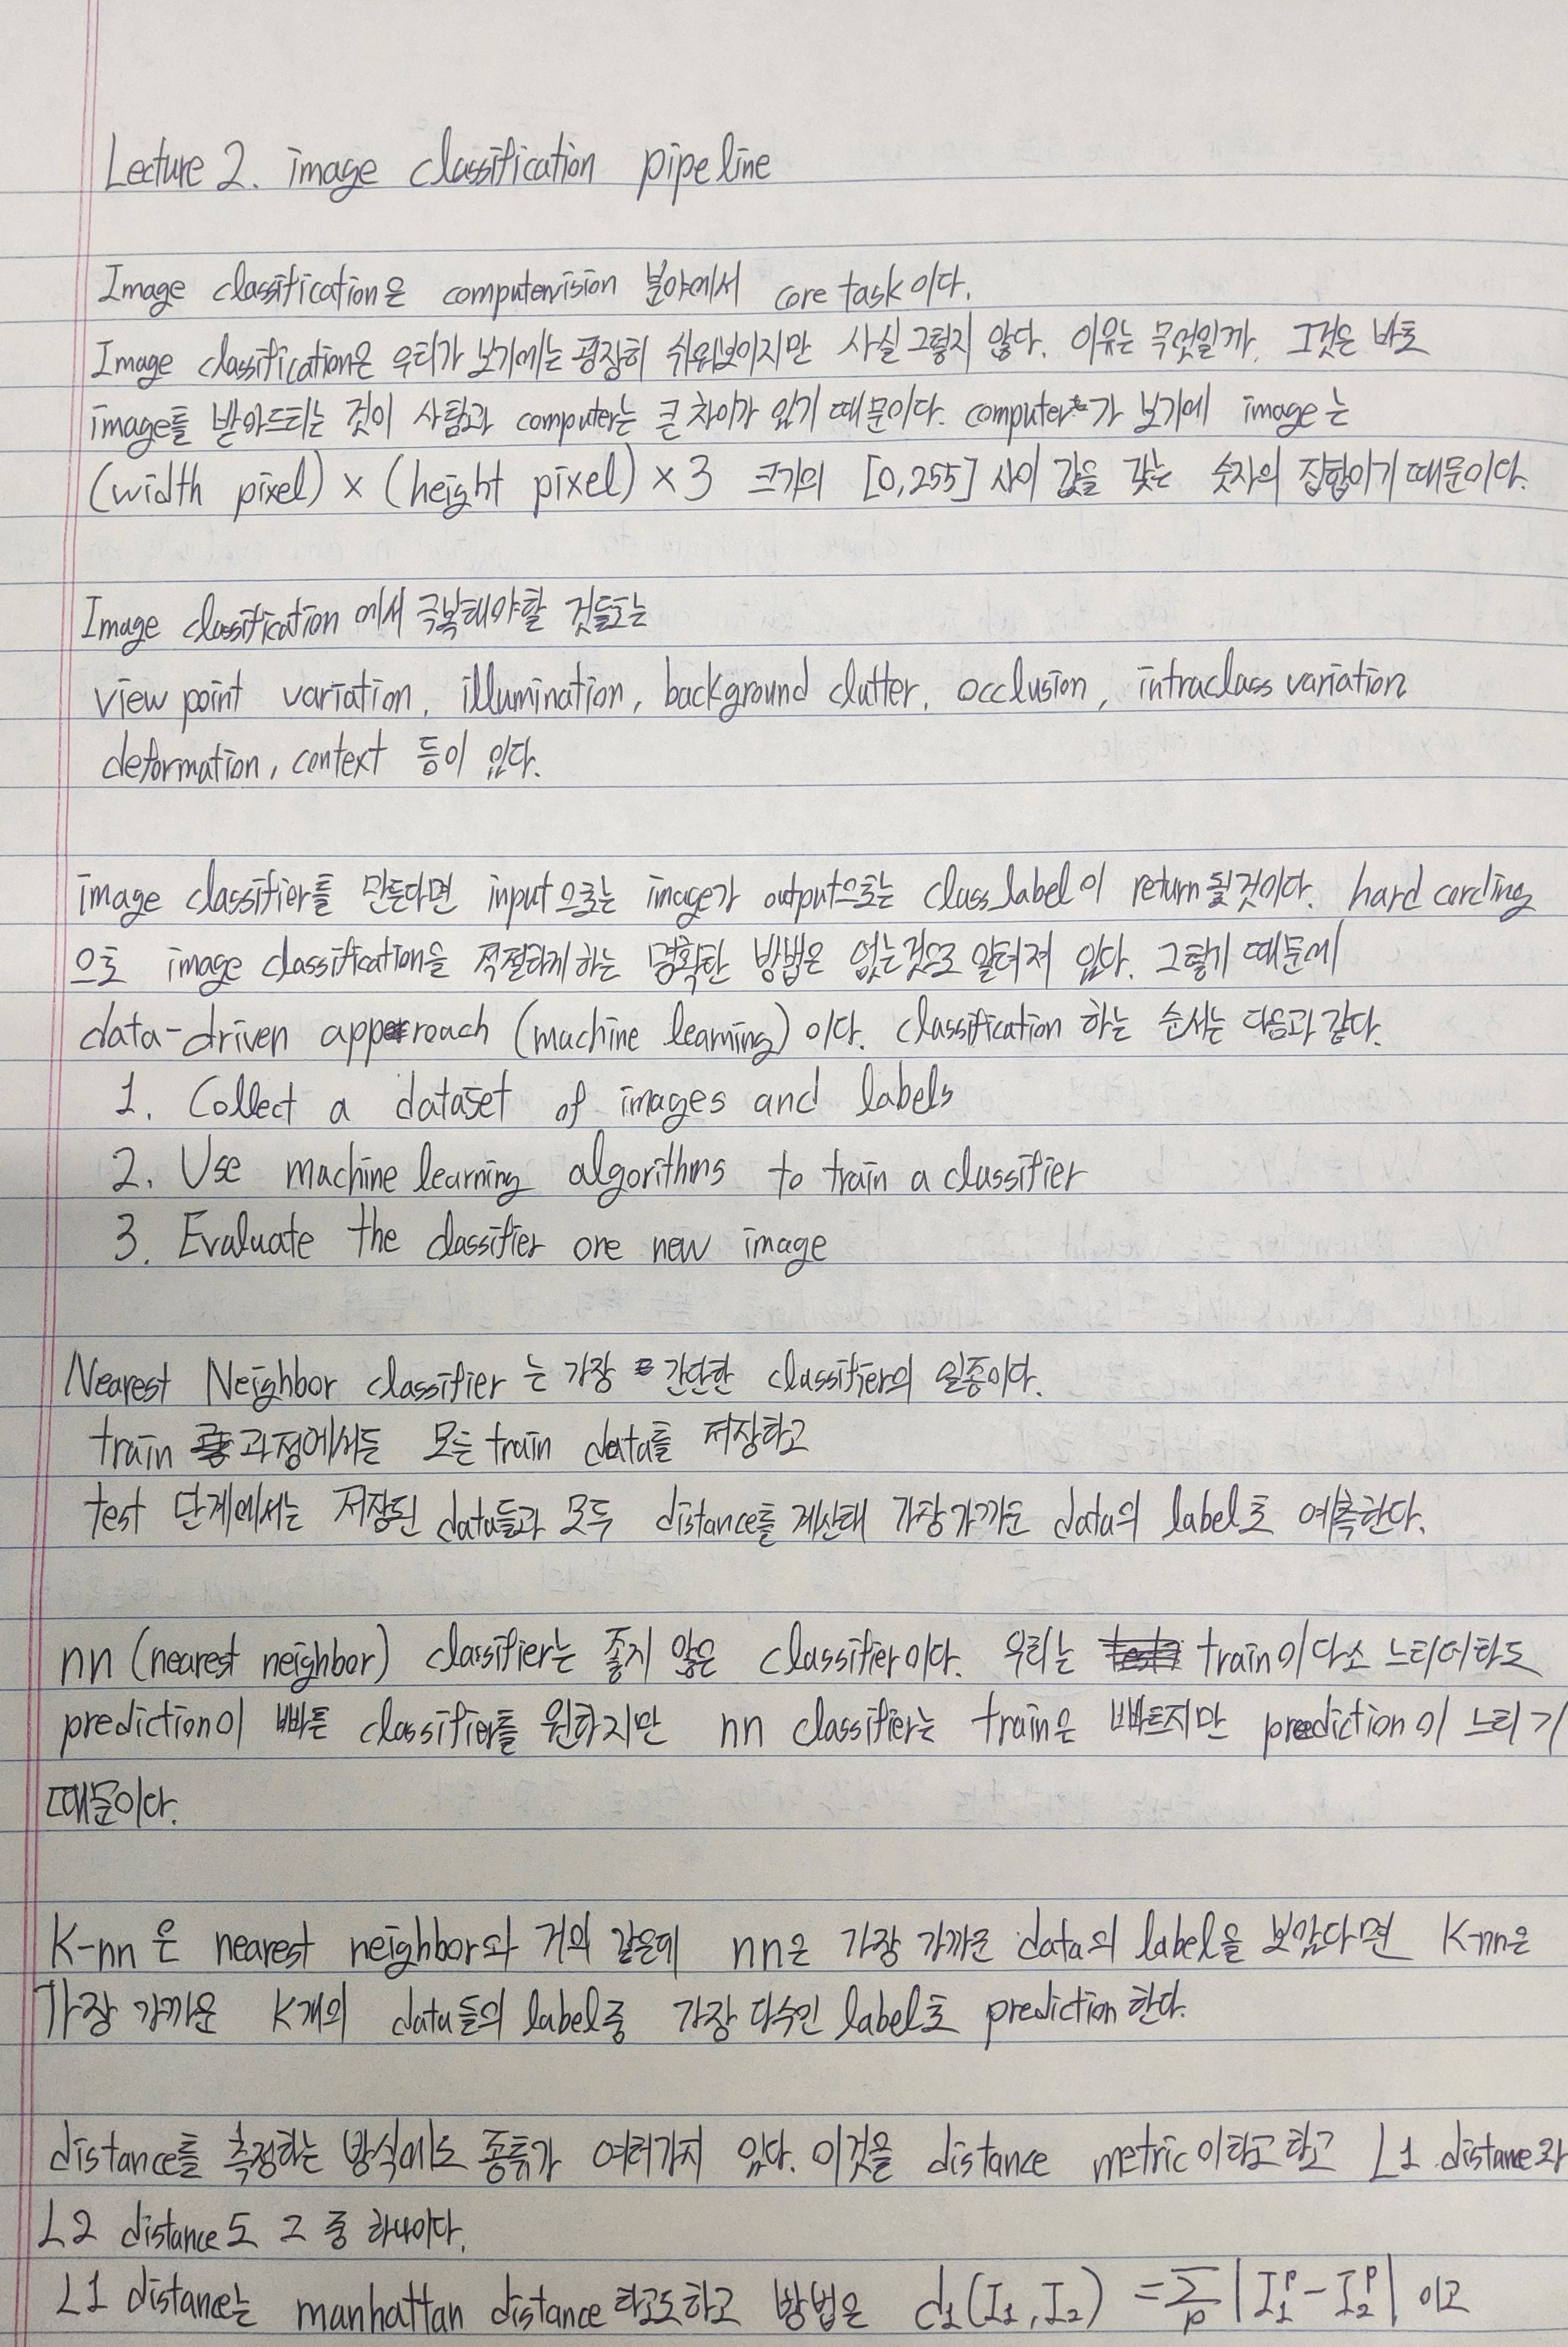 Lecture 2. image classification pipeline
Image classification은 computervision 분야에서 core task이다.
Image classification은 우리가 보기에는 굉장히 쉬워보이지만 사실 그렇지 않다. 이유는 무엇일까. 그것은 바로
image를 받아드리는 것이 사람과 computer는 큰 차이가 있기 때문이다. computer가 보기에 image는
(width pixel) × (height pixel) × 3 크기의 [0,255] 사이 값을 갖는 숫자의 집합이기 때문이다.
Image classification에서 극복해야할 것들로는
view point variation, illumination, background clutter, occlusion, intraclass variation
deformation, context 등이 있다.
image classifier를 만든다면 input으로는 image가 output으로는 class_label이 return될것이다. hard cording
으로 image classification을 적절하게 하는 명확한 방법은 없는것으로 알려져 있다. 그렇기 때문에
data-driven approach (machine learning)이다. classification 하는 순서는 다음과 같다.
1. Collect a dataset of images and labels
2. Use machine learning algorithms to train a classifier
3. Evaluate the classifier one new image
Nearest Neighbor classifier는 가장 간단한 classifier의 일종이다.
train 과정에서는 모든 train data를 저장하고
test 단계에서는 저장된 data들과 모두 distance를 계산해 가장가까운 data의 label로 예측한다.
nn (nearest neighbor) classifier는 좋지 않은 classifier이다. 우리는 train이 다소 느리더라도
prediction이 빠른 classifier를 원하지만 nn classifier는 train은 빠르지만 prediction이 느리기
때문이다.
K-nn은 nearest neighbor와 거의 같은데 nn은 가장 가까운 data의 label을 보았다면 K-nn은
가장 가까운 K개의 data들의 label중 가장 다수인 label로 prediction한다.
distance를 측정하는 방식에도 종류가 여러가지 있다. 이것을 distance metric이라고 하고 L1 distance와
L2 distance도 그 중 하나이다.
L1 distance는 manhattan distance라고도하고 방법은 d₁(I₁, I₂) = Σₚ |I₁ᵖ - I₂ᵖ| 이고